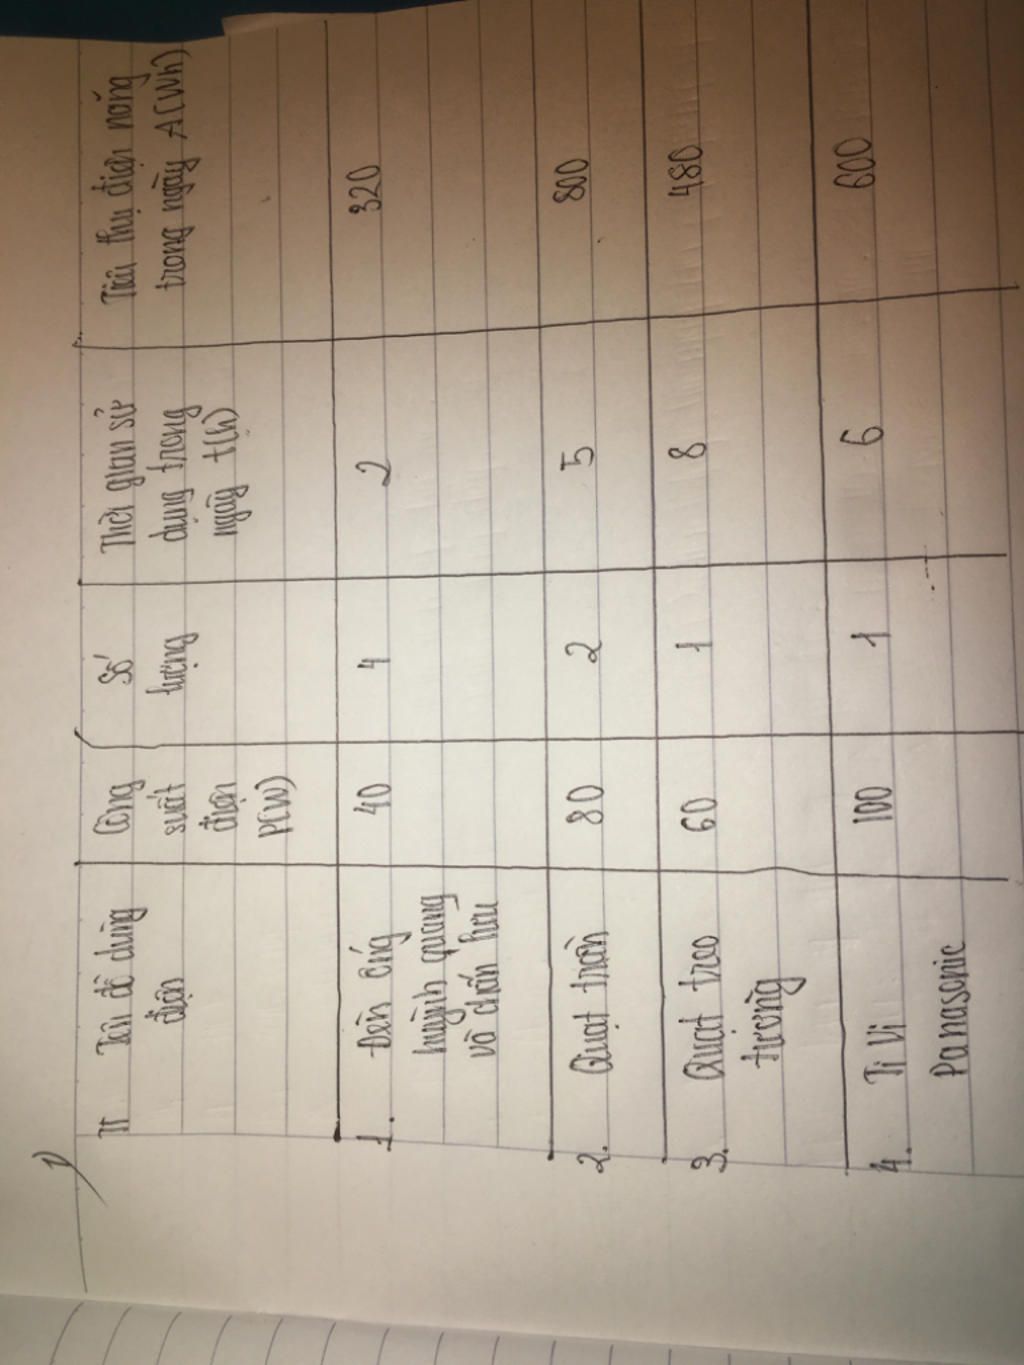 1)
TT Tên đồ dùng điện Công suất điện P(W) Số lượng Thời gian sử dụng trong ngày t(h) Tiêu thụ điện năng trong ngày A(Wh)
1. Đèn ống huỳnh quang và chấn lưu 40 4 2 320
2. Quạt trần 80 2 5 800
3. Quạt treo tường 60 1 8 480
4. Ti Vi Panasonic 100 1 6 600